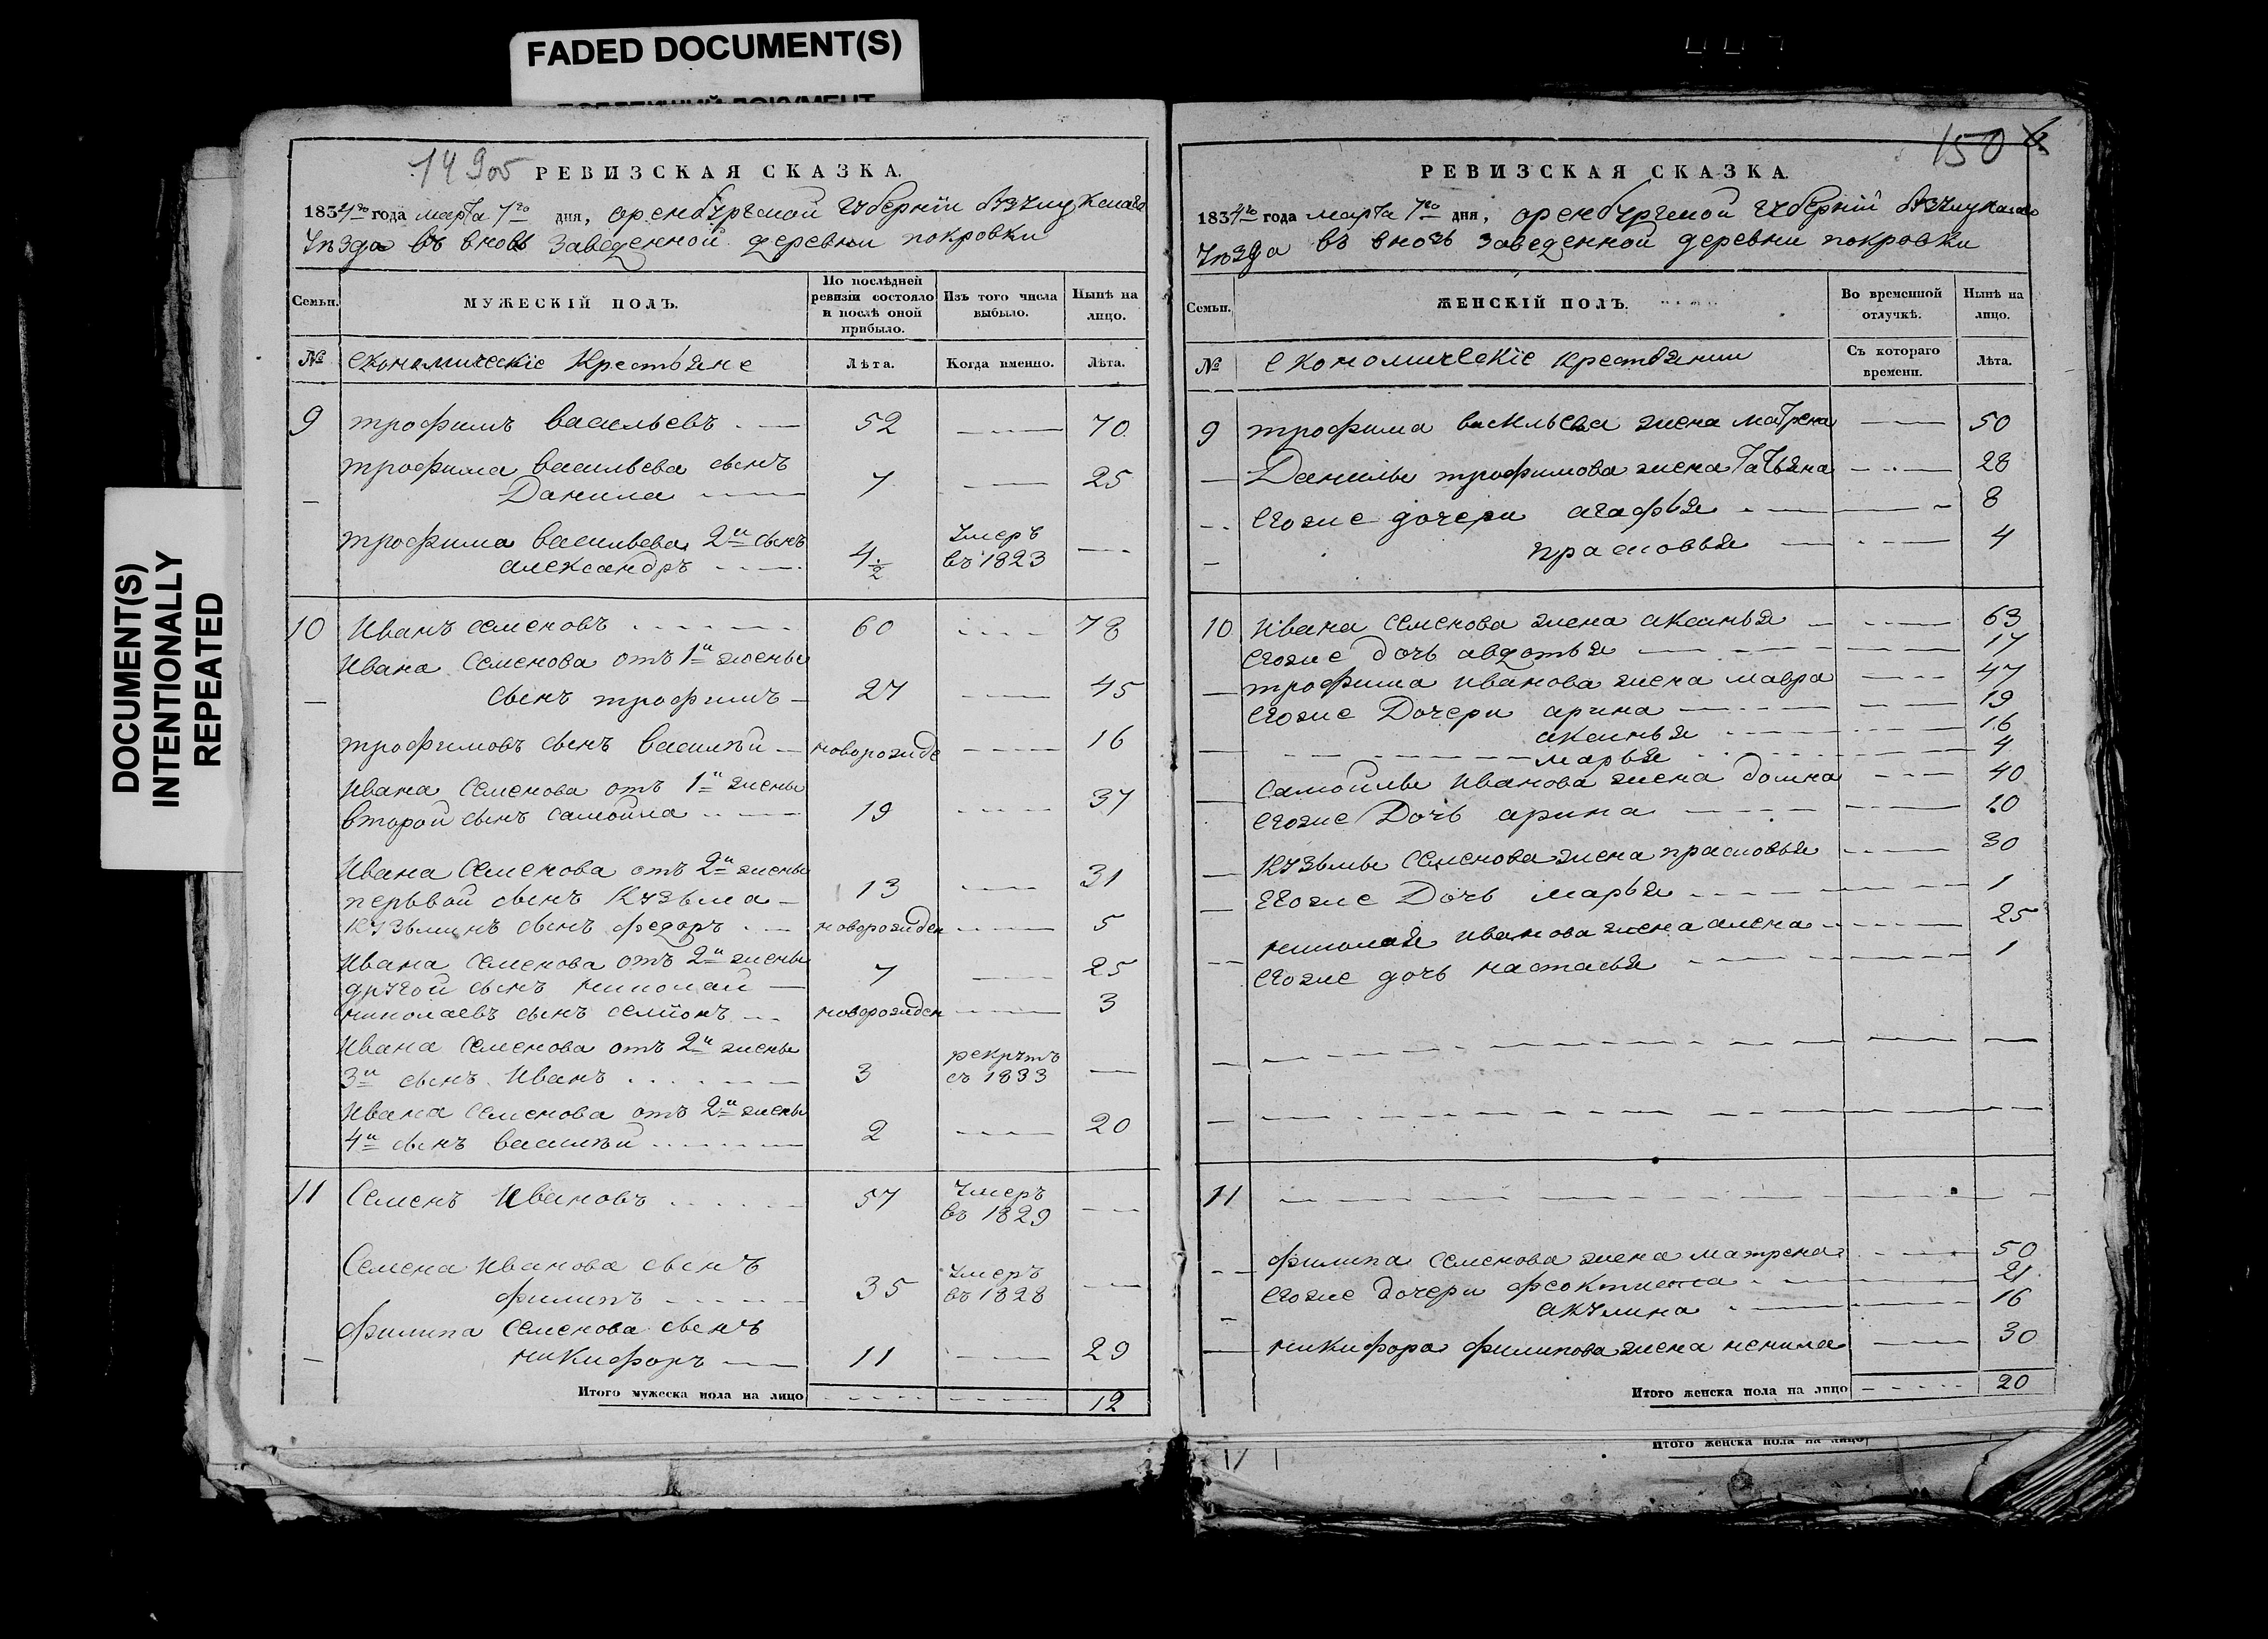 FADED DOCUMENT(S)
DOCUMENT(S)
INTENTIONALLY
REPEATED
РЕВИЗСКАЯ СКАЗКА.
1834го года марта 7го дня, оренбургской губернїи бузулукскаго
уѣзда въ вновь заведенной деревни покровки
Семьи.
МУЖЕСКІЙ ПОЛЪ.
По послѣдней
ревизіи состояло
и послѣ оной
прибыло.
Изъ того числа
выбыло.
Нынѣ на
лицо.
№ економическїе крестьяне Лѣта. Когда именно. Лѣта.
9 трофимъ васильевъ 52 70
трофима васильева сынъ
Данила 7 25
трофима васильева 2й сынъ
александръ 4 1/2 умеръ въ 1823
10 Иванъ семеновъ 60 78
Ивана Семенова отъ 1й жены
сынъ трофимъ 27 45
трофимовъ сынъ василѣй новорожде 16
Ивана Семенова отъ 1й жены
второй сынъ самойла 19 37
Ивана Семенова отъ 2й жены
первой сынъ Кузьма 13 31
Кузьминъ сынъ федоръ новорожден 5
Ивана Семенова отъ 2й жены
другой сынъ николай 7 25
николаевъ сынъ семйонъ новорожден 3
Ивана Семенова отъ 2й жены
3й сынъ Иванъ 3 рекрутъ съ 1833
Ивана Семенова отъ 2й жены
4й сынъ василѣй 2 20
11 Семенъ Ивановъ 57 умеръ въ 1829
Семена Иванова сынъ
филипъ 35 умеръ въ 1828
филипа Семенова сынъ
никифоръ 11 29
Итого мужеска пола на лицо 12
150
РЕВИЗСКАЯ СКАЗКА.
1834го года марта 7го дня, оренбургской губернїй бузулукскаго
уѣзда въ вновь заведенной деревни покровки
Семьи.
ЖЕНСКІЙ ПОЛЪ.
Во временной
отлучкѣ.
Нынѣ на
лицо.
№ економическїе крестьянки Съ котораго времени. Лѣта.
9 трофима васильева жена матрена 50
Данилы трофимова жена татьяна 28
егоже дочери агафья 8
прасковья 4
10 Ивана Семенова жена аксинья 63
егоже дочь авдотья 17
трофима иванова жена мавра 47
егоже Дочери арина 19
аксинья 16
марья 4
самойлы Иванова жена домна 40
егоже Дочь арина 10
Кузьмы Семенова жена прасковья 30
егоже Дочь марья 1
николая Иванова жена алена 25
егоже дочь настасья 1
11
филипа Семенова жена матрена 50
егоже дочери феоктиста 21
акулина 16
никифора филипова жена ненила 30
Итого женска пола на лицо 20
Итого женска пола на лицо